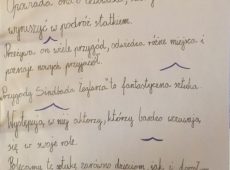 Opowiada ona o
wyruszyć w podróż statkiem.
Przeżywa on wiele przygód, odwiedza różne miejsca i
poznaje nowych przyjaciół.
"Przygody Sindbada Żeglarza" to fantastyczna sztuka.
Występują w niej aktorzy, którzy bardzo wczuwają
się w swoje role.
Polecamy tę sztukę zarówno dzieciom jak i